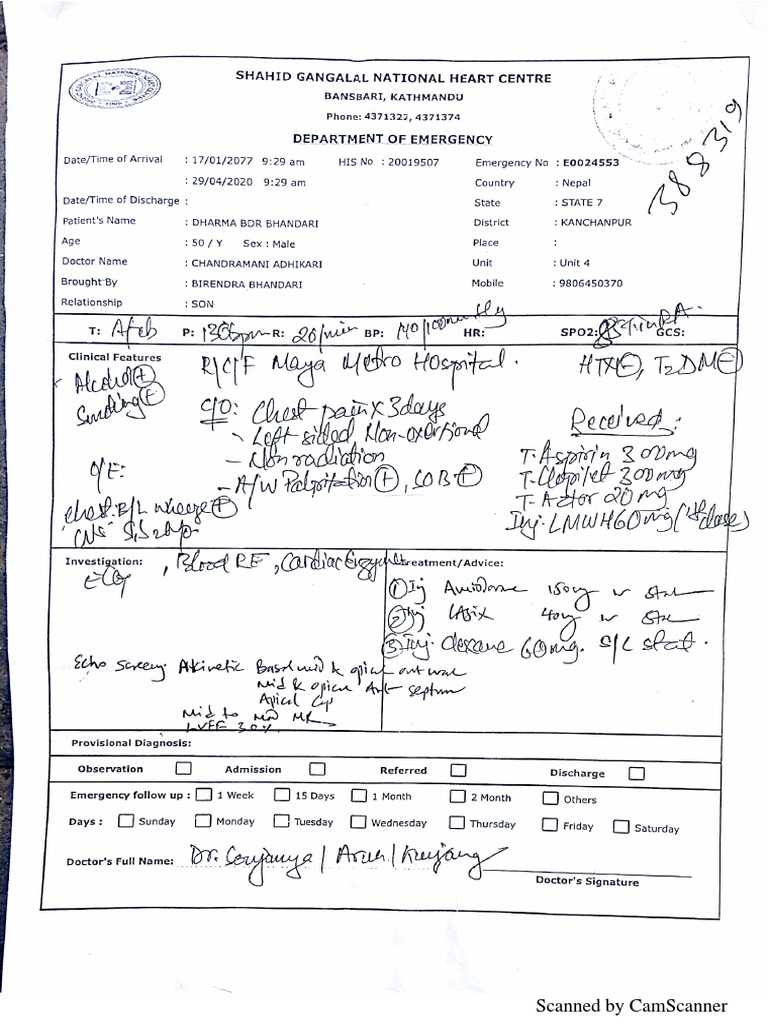 SHAHID GANGALAL NATIONAL HEART CENTRE
BANSBARI, KATHMANDU
Phone: 4371322, 4371374
DEPARTMENT OF EMERGENCY
388319
Date/Time of Arrival : 17/01/2077 9:29 am HIS No : 20019507 Emergency No : E0024553
: 29/04/2020 9:29 am Country : Nepal
Date/Time of Discharge : State : STATE 7
Patient's Name : DHARMA BDR BHANDARI District : KANCHANPUR
Age : 50 / Y Sex : Male Place :
Doctor Name : CHANDRAMANI ADHIKARI Unit : Unit 4
Brought By : BIRENDRA BHANDARI Mobile : 9806450370
Relationship : SON
T: Afeb P: 130bpm R: 20/min BP: 140/100mmHg HR: SPO2: GCS:
Clinical Features R/C/F Maya Metro Hospital. HTN(-), T2DM(-)
Alcohol(+)
Smoking(+)
C/O: Chest pain x 3days Received:
- Left sided Non-exertional
- Non radiation T. Aspirin 300mg
O/E: - A/W Palpitation(+), SOB(+) T. Clopilet 300mg
Chest: B/L wheeze(+) T. Ator 20mg
CVS: S1S2 Inj. LMWH 60mg (1st dose)
Investigation: Treatment/Advice:
ECG, Blood RE, Cardiac Enzymes
① Inj Amiodarone 150mg iv stat
② Inj Lasix 40mg iv stat
③ Inj. clexane 60mg. S/C stat.
Echo Screening: Akinetic Basal mid & apical ant wall
Mid & apical Ant septum
Apical Cap
Mild to Mod MR
LVEF 30%
Provisional Diagnosis:
Observation Admission Referred Discharge
Emergency follow up : 1 Week 15 Days 1 Month 2 Month Others
Days : Sunday Monday Tuesday Wednesday Thursday Friday Saturday
Doctor's Full Name: Dr. / Arun /
Doctor's Signature
Scanned by CamScanner